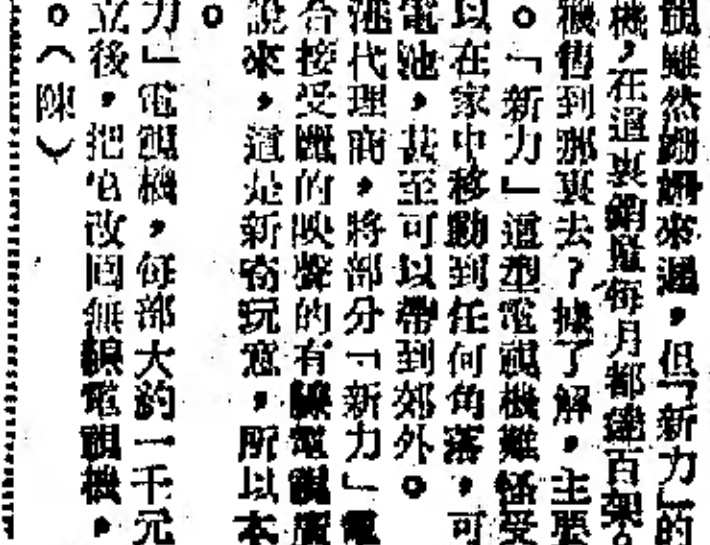 視雖然姍姍來遲，但「新力」的
機，在這裏銷量每月都達百架。
機售到那裏去？據了解，主要
。「新力」這型電視機難怪受
以在家中移動到任何角落，可
電池，甚至可以帶到郊外。
港代理商，將部分「新力」電
合接受麗的映聲的有線電視廣
說來，這是新奇玩意，所以本
。
力」電視機，每部大約一千元
立後，把它改回無線電視機，
。（陳）